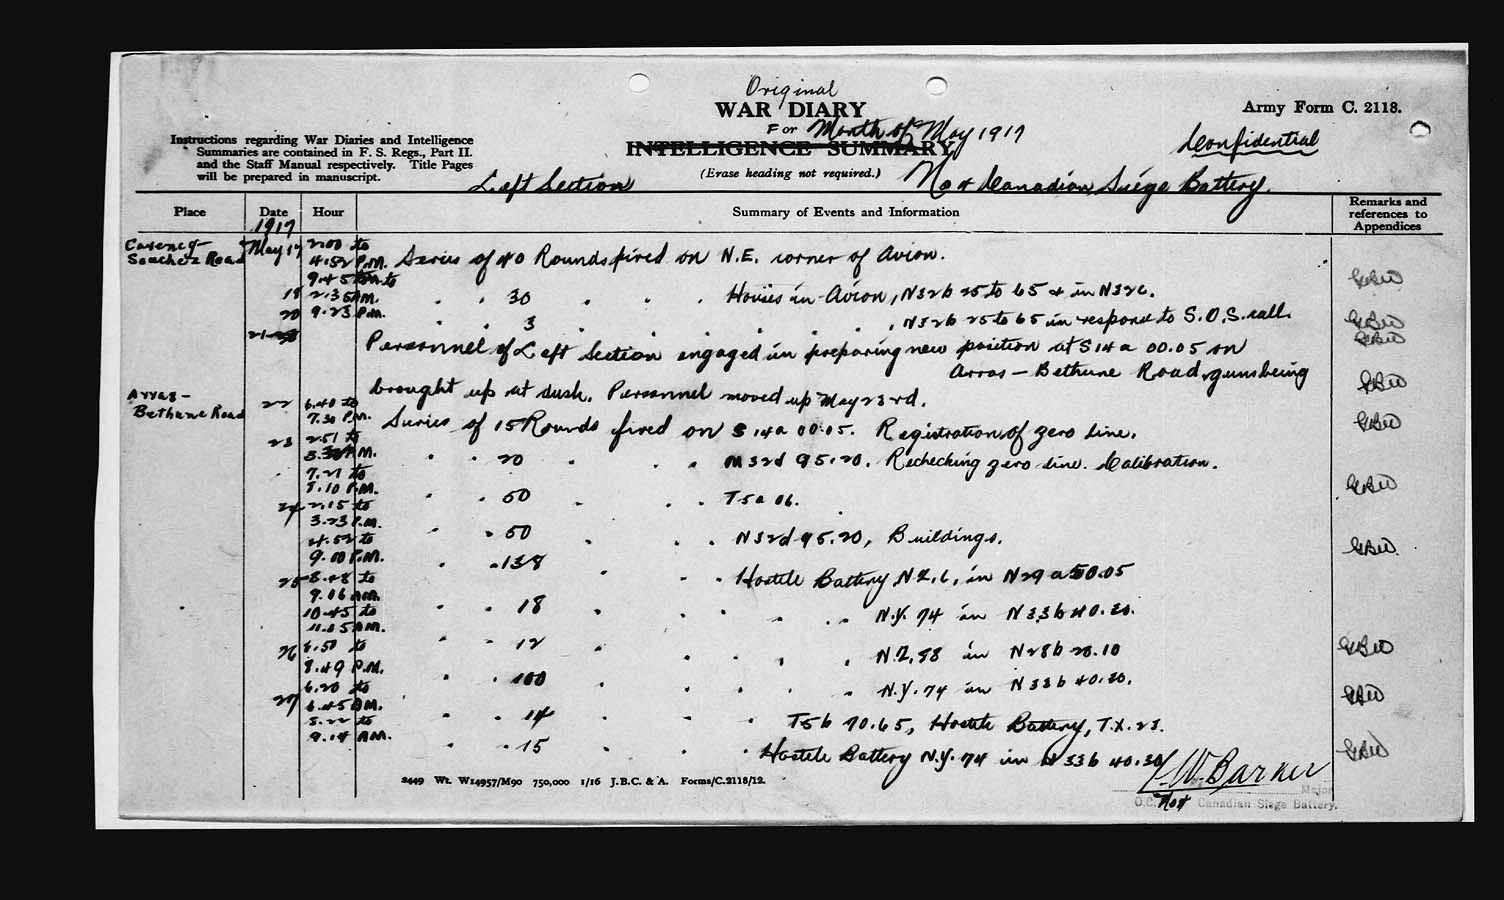 Original
WAR DIARY
Army Form C. 2118.
For Month of May 1917
INTELLIGENCE SUMMARY
Confidential
(Erase heading not required.)
Instructions regarding War Diaries and Intelligence
Summaries are contained in F. S. Regs., Part II.
and the Staff Manual respectively. Title Pages
will be prepared in manuscript.
Left Section
No 4 Canadian Siege Battery.
Place Date Hour Summary of Events and Information Remarks and references to Appendices
1917
Carency- May 17 2.00 to
Souchez Road 4.52 P.M. Series of 40 Rounds fired on N.E. corner of Avion.
9.45 to
19 2.35 A.M. " " 30 " " " Houses in Avion, N32b 25 to 65 & in N32c.
20 9.23 P.M. " " 3 " " " " , N32b 25 to 65 in respond to S.O.S. call.
21 Personnel of Left Section engaged in preparing new position at S14a 00.05 on
Arras - Bethune Road, guns being
brought up at dusk. Personnel moved up May 23rd.
Arras -
Bethune Road 22 6.40 to
7.30 P.M. Series of 15 Rounds fired on S14a 00.05. Registration of zero line.
23 2.51 to
P.M. " " 20 " " " M32d 95.20. Rechecking zero line. Calibration.
7.27 to
.10 P.M. " " 50 " " " T5a 06.
24 2.15 to
3.23 P.M. " " 50 " " " N32d 95.20, Buildings.
4.52 to
9.00 P.M. " " 138 " " " Hostile Battery N.Z.6, in N29a 50.05
25 8.48 to
9.16 A.M. " " 18 " " " N.Y. 74 in N33b 40.30.
10.45 to
11.15 A.M. " " 12 " " " N.Z.58 in N28b 20.10
26 6.50 to
8.49 P.M. " " 100 " " " N.Y. 74 in N33b 40.30.
6.20 to
27 6.45 A.M. " " 14 " " " T5b 70.65, Hostile Battery, T.X. 23.
to
9.14 A.M. " " 15 " " " Hostile Battery N.Y. 74 in N33b 40.30
2449 Wt. W14957/M90 750,000 1/16 J.B.C. & A. Forms/C.2118/12.
W. Barker
Major
O.C. No 4 Canadian Siege Battery.